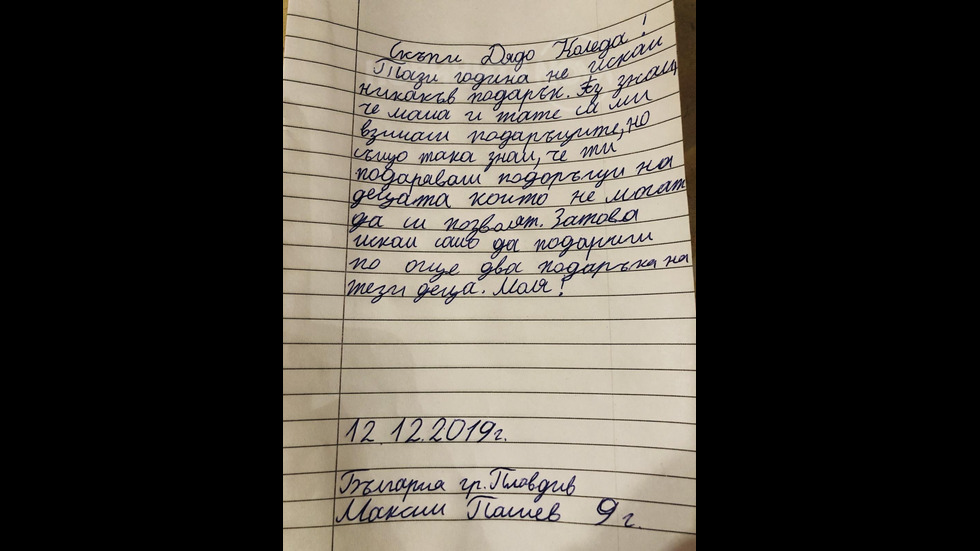 Скъпи Дядо Коледа!
Тази година не искам
никакъв подарък. Аз знам,
че мама и тате са ми
взимали подаръците, но
също така знам, че ти
подаряваш подоръци на
децата които не могат
да си позволят. Затова
искам само да подариш
по още два подаръка на
тези деца. Моля!
12.12.2019г.
България гр. Пловдив
Максим Пашев 9 г.